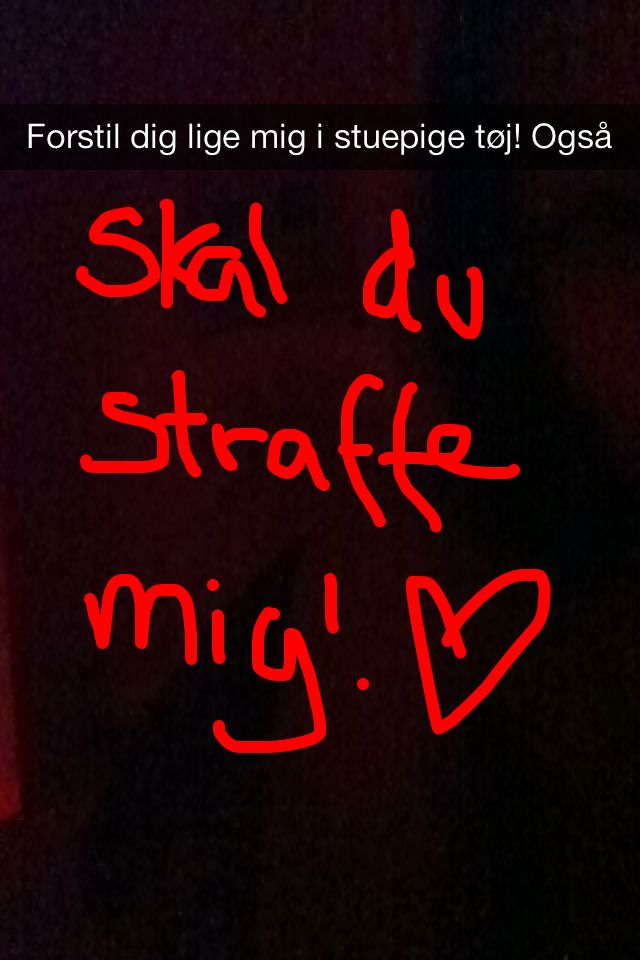 Forstil dig lige mig i stuepige tøj! Også
Skal du
straffe
mig! ♡